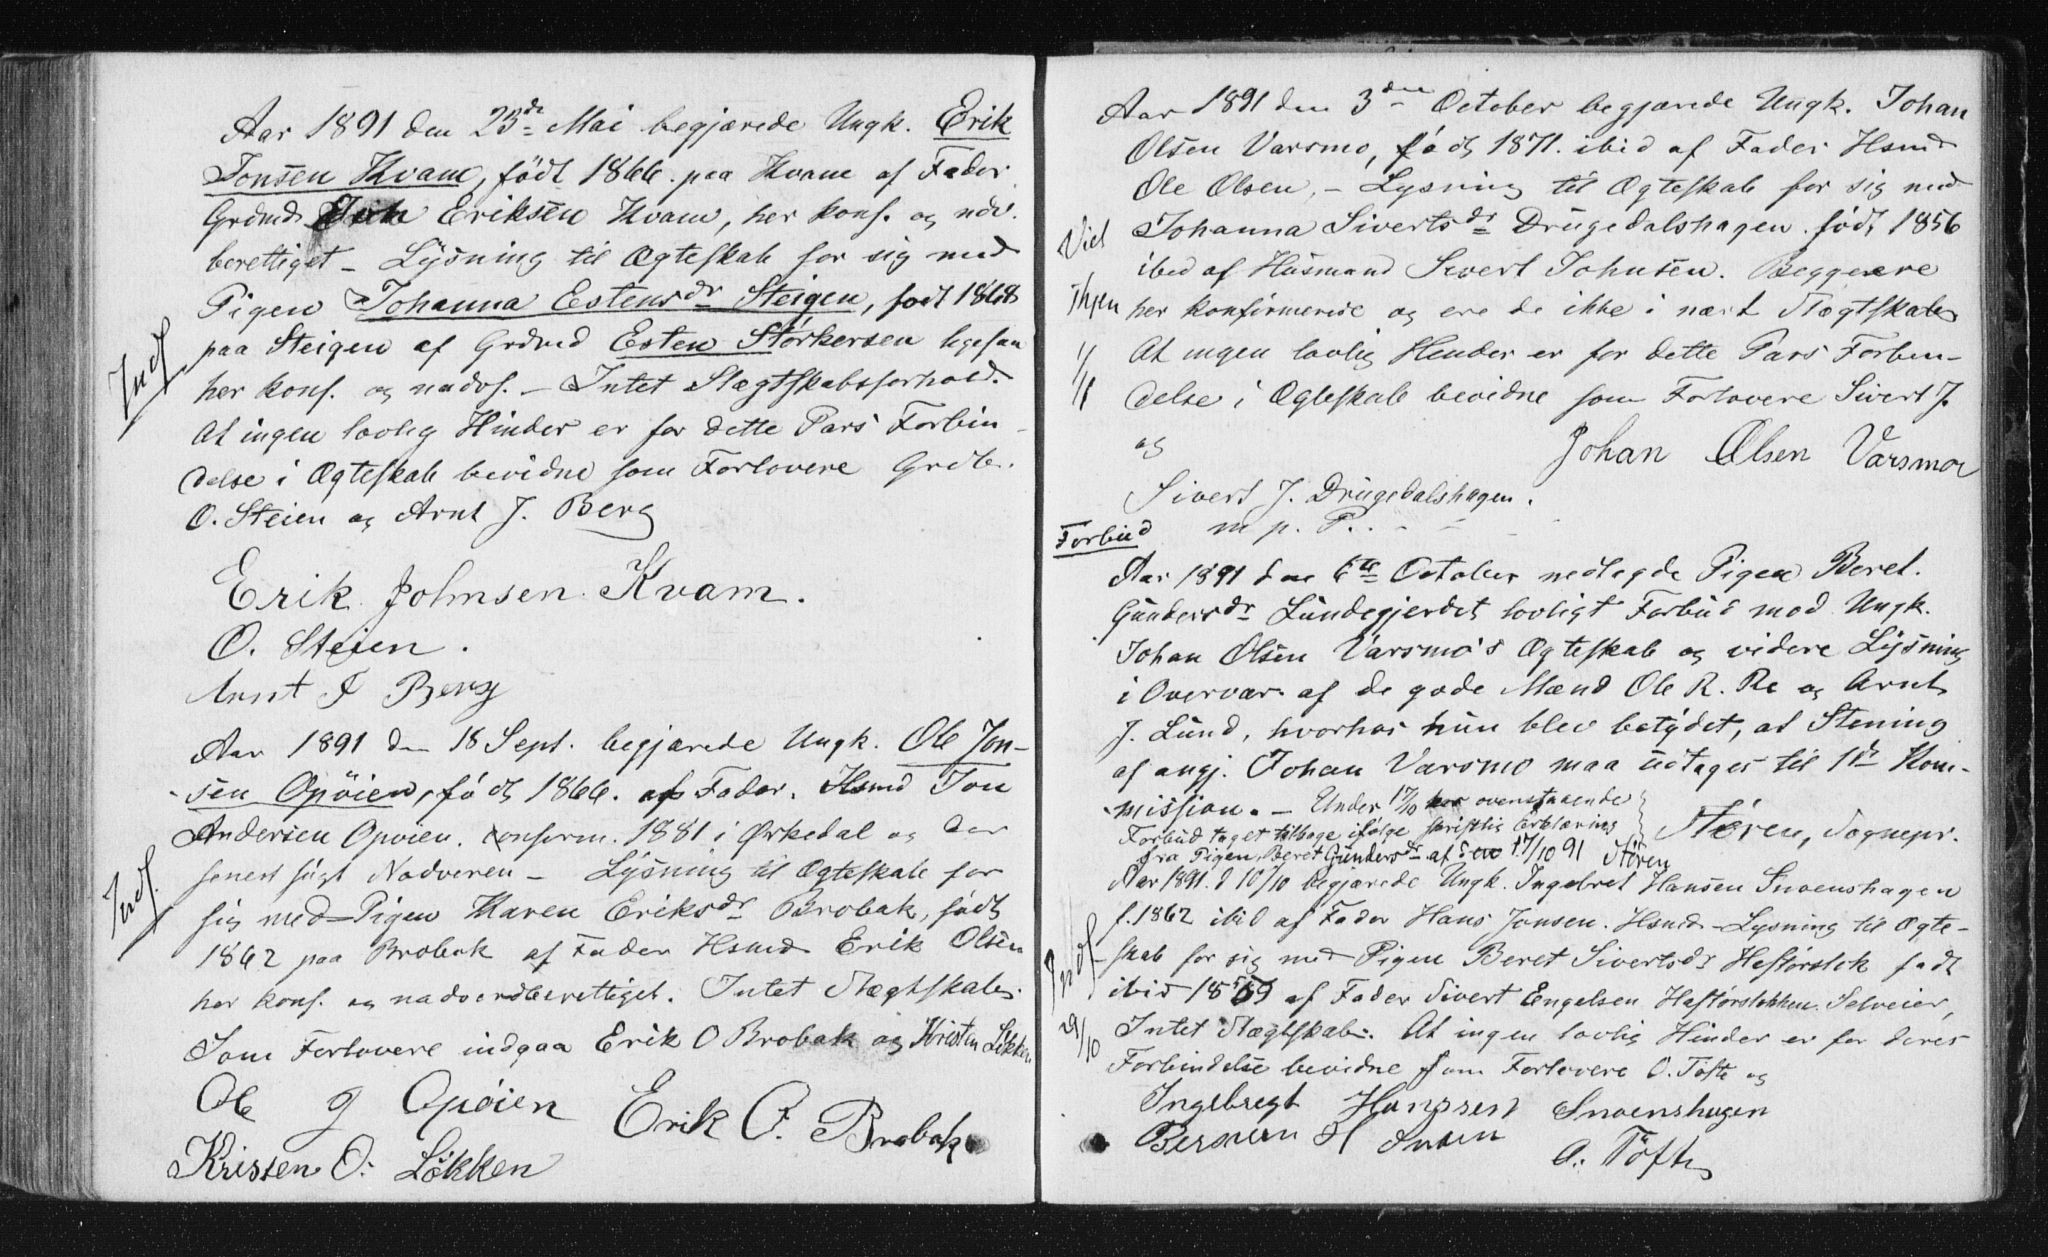 Aar 1891 den 23de Mai begjærede Ungk. Erik
Jonsen Kvam, född 1866. paa Kvam af Fader
Grdmd. Eriksen Kvam, her konf. og ndv.
berettiget - Lysning til Ægteskab for sig med
Pigen Johanna Estensdr Steigen, født 1868
paa Steigen af Grdmd Esten Störkersen ligesaa
Indf.
her konf. og nadvf. - Intet Slægtskabsforhold.
At ingen lovlig Hinder er for dette Pars Forbin-
delse i Ægteskab bevidne som Forlovere Grdb.
O. Steien og Arnt J. Berg
Erik Johnsen Kvam.
O. Steien.
Arnt J Berg
Aar 1891 den 18 Sept. begjærede Ungk. Ole Jon-
sen Opöien, födt 1866. af Fader. Hsmd Jon
Andersen Opöien. confirm. 1881 i Ørkedal og der
senest sögt Nadveren - Lysning til Ægteskab for
Indf.
sig med Pigen Maren Eriksdr Brobak, födt
1862 paa Brobak af Fader Hsmd Erik Olsen
her konf. og nadverdberettiget. Intet Slægtskab.
Som Forlovere indgaa Erik O Brobak og Kristen Lökken
Ole J Opöien Erik O. Brobak
Kristen O. Lökken
Aar 1891 den 3die October begjærede Ungk. Johan
Olsen Varsmo, födt 1871. ibid af Fader Hsmd
Ole Olsen, - Lysning til Ægteskab for sig med
Viet
Johanna Sivertsdr Drugedalshagen. födt 1856
ibid af Husmand Sivert Johnsen. Begge ere
her konfirmerede og ere de ikke i nært Slægtskab
At ingen lovlig Hinder er for dette Pars Forbin-
delse i Ægteskab bevidne som Forlovere Sivert J.
og Johan Olsen Varsmo
Sivert J. Drugedalshagen.
m. p. P.
Forbud
Aar 1891 den 6te October nedlagde Pigen Beret
Gundersdr Lundegjerdet lovligt Forbud mod Ungk.
Johan Olsen Varsmo's Ægteskab og videre Lysning
i Overvær af de gode Mænd Ole R. Re og Arnt
J. Lund, hvorhos hun blev betydet, at Stevning
af angj. Johan Varsmo maa udtages til 1ste Kom-
mission. - Under 17/10 ovenstaaende
Forbud taget tilbage ifölge skriftlig Erklæring Stören, Sognepr.
fra Pigen Beret Gundersdr af den 17/10 91 Stören
Aar 1891. d 10/10 begjærede Ungk. Ingebret Hansen Snoenshagen
f. 1862 ibid af Fader Hans Jonsen. Hsmd - Lysning til Ægte-
Indf
skab for sig med Pigen Beret Sivertsdr födt
ibid 1859 af Fader Sivert Engelsen Selveier,
29/10
Intet Slægtskab. At ingen lovlig Hinder er for deres
Forbindelse bevidne som Forlovere O. Töfte og
Ingebregt Hanssen Snoenshagen
H Jonsen
O. Töfte